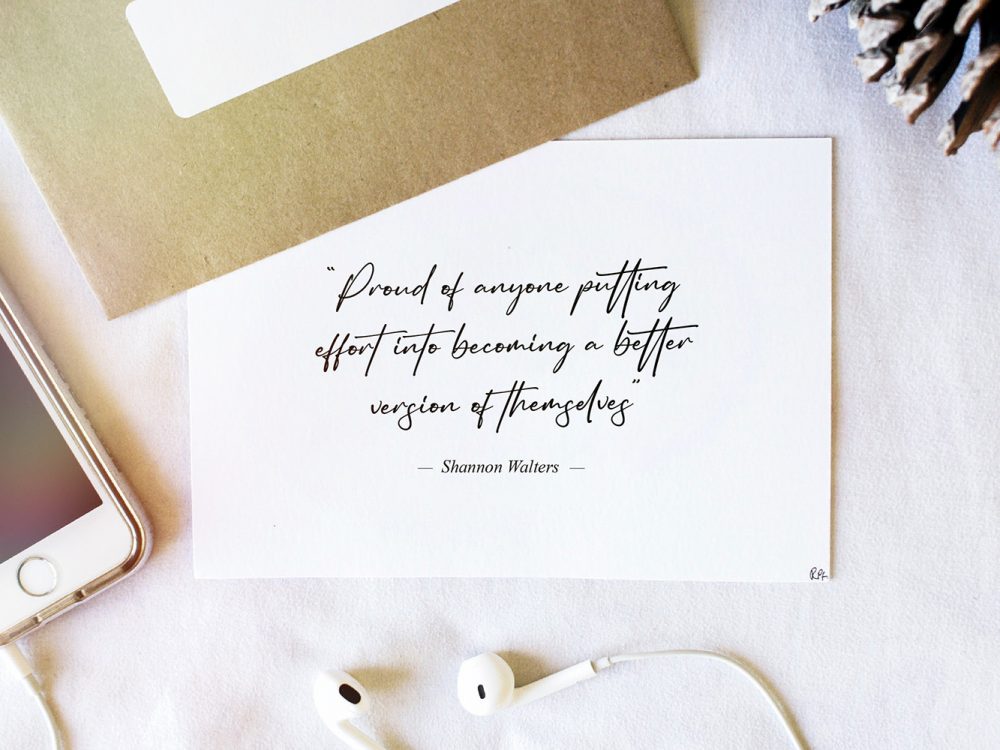 "Proud of anyone putting
effort into becoming a better
version of themselves"
— Shannon Walters —